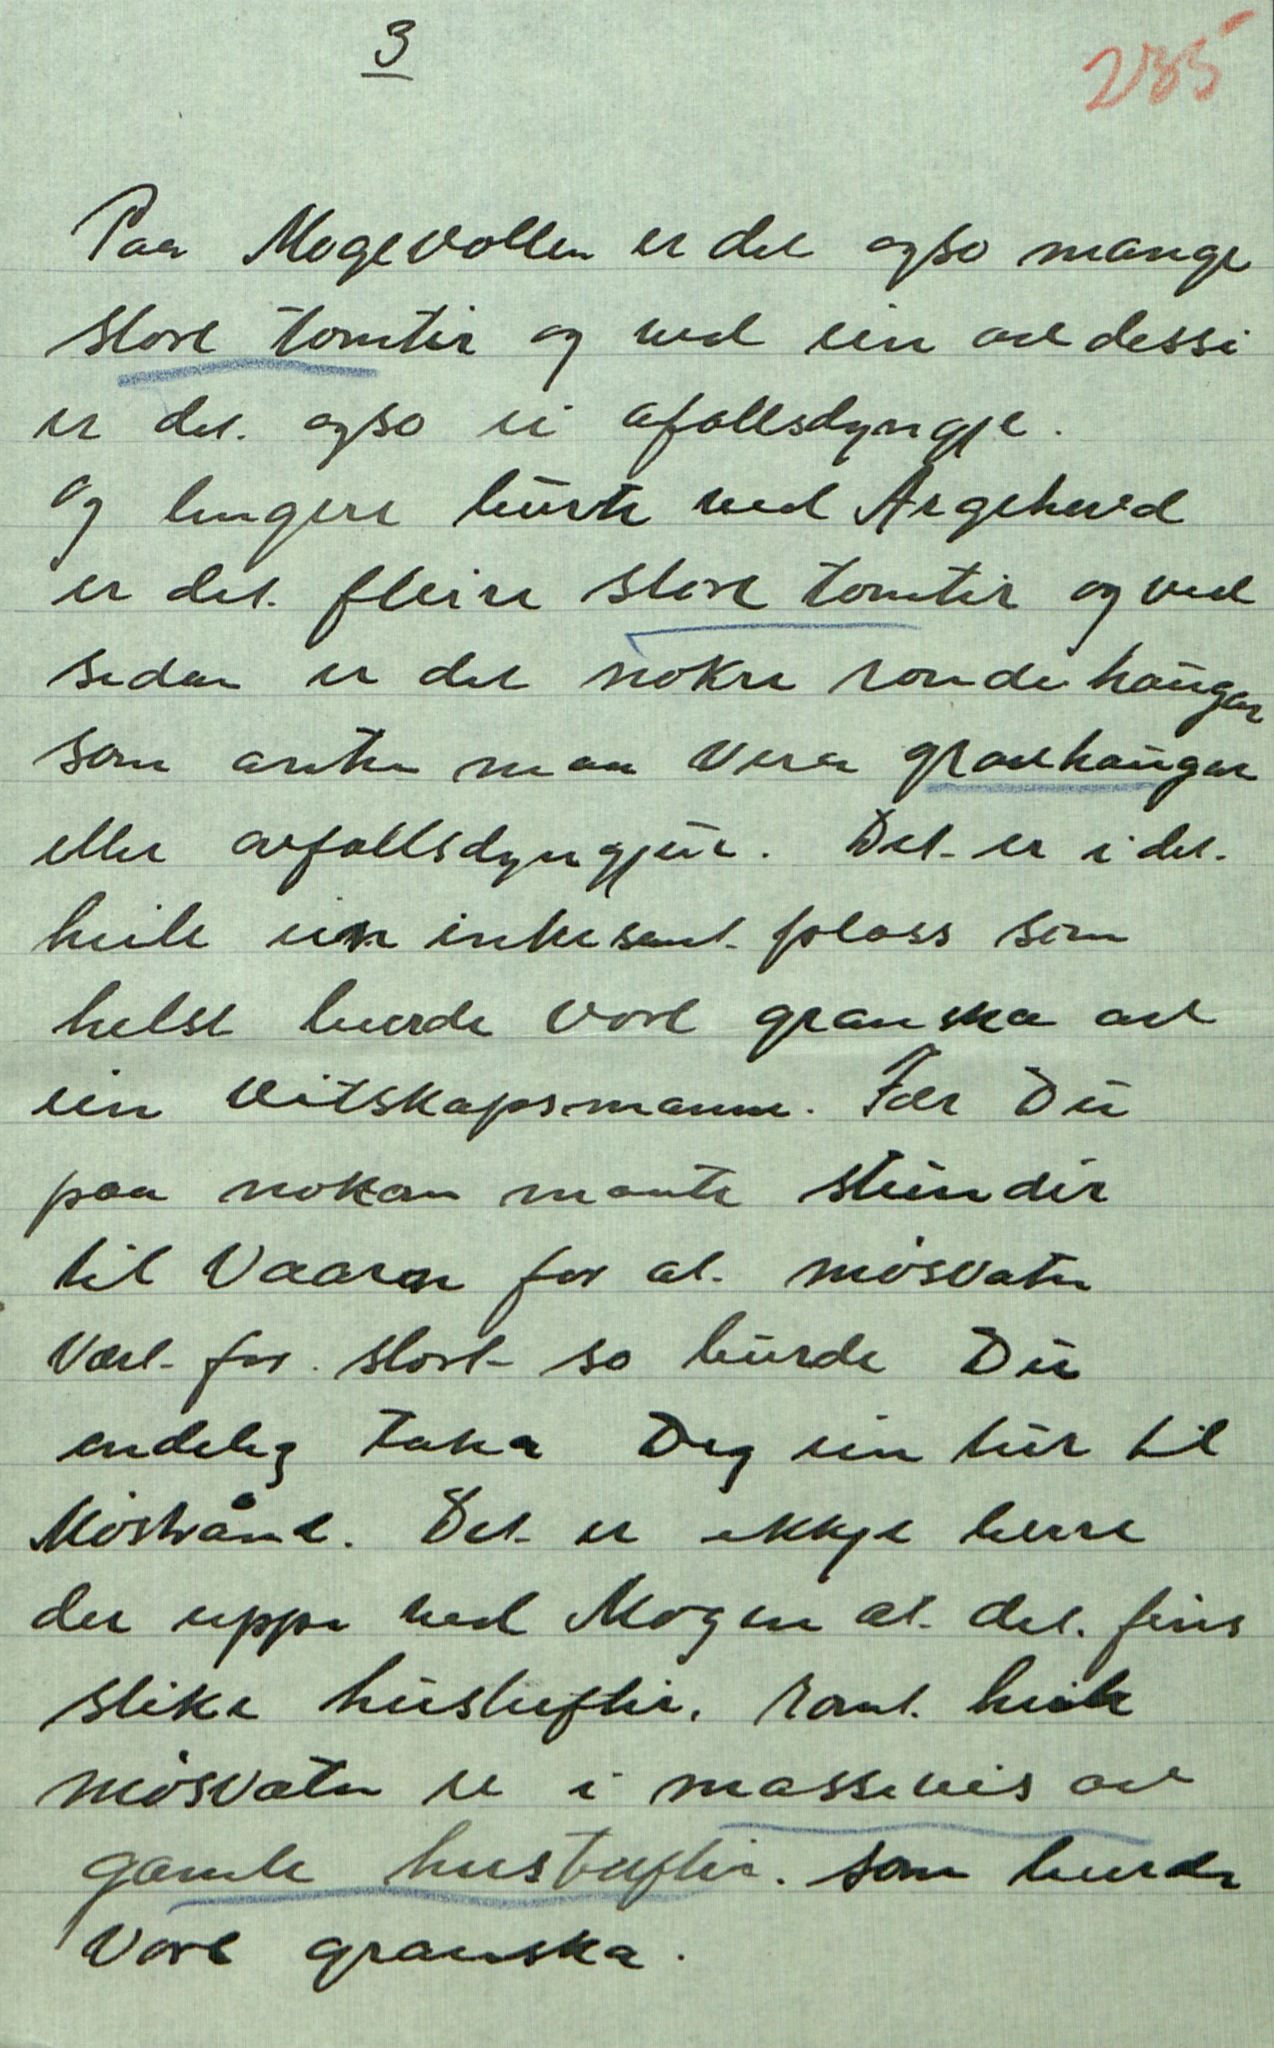 3
285
Paa Mogevollen er det ogso mange
store tomtir og ved ein av dessi
er det ogso ei afallsdyngje.
Og lengere burte ved Argehovd
er det fleire store tomtir og ved
sedan er det nokre ronde haugar
som anten maa vera gravhaugar
eller avfallsdyngjur. Det er i det
heile ein intresant plass som
helst burde vort granska av
ein vitskapsmann. Fær Du
paa nokon maate stunder
til Vaaren for at møsvatn
vært for stort so burde Du
endeleg taka Deg ein tur til
Møstrånd. Det er ikkje berre
der uppe ved Mogen at det fins
slike hustuftir. Ront heile
møsvatn er i massevis av
gamle hustuftir. som burde
vort granska.